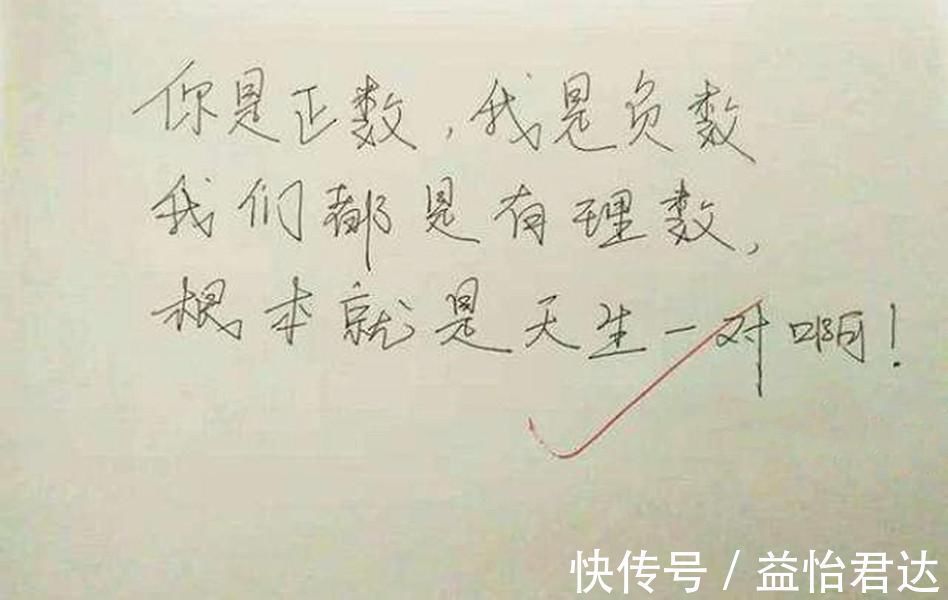 你是正数，我是负数
我们都是有理数，
根本就是天生一对啊！
快传号／益怡君达